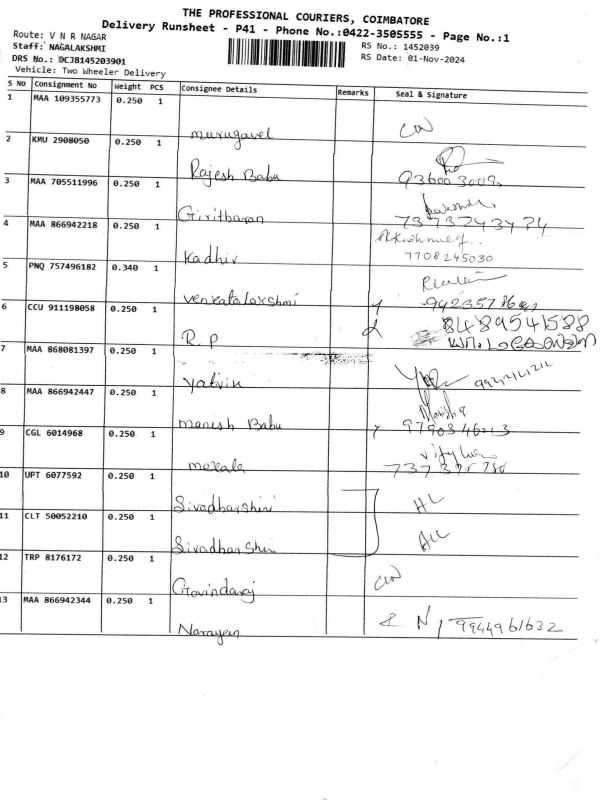 THE PROFESSIONAL COURIERS, COIMBATORE
Delivery Runsheet - P41 - Phone No.:0422-3505555 - Page No.:1
Route: V N R NAGAR
RS No.: 1452039
Staff: NAGALAKSHMI
RS Date: 01-Nov-2024
DRS No.: DCJB145203901
Vehicle: Two Wheeler Delivery
S No Consignment No Weight PCS Consignee Details Remarks Seal & Signature
1 MAA 109355773 0.250 1 murugavel
2 KMU 2908050 0.250 1 Rajesh Babu
3 MAA 705511996 0.250 1 Giritharan
4 MAA 866942218 0.250 1 Kadhir 7708245030
5 PNQ 757496182 0.340 1 Venkatalaxshmi
6 CCU 911198058 0.250 1 R.P 8489541588
7 MAA 868081397 0.250 1 Yatvik
8 MAA 866942447 0.250 1 Manish Babu
9 CGL 6014968 0.250 1
10 UPT 6077592 0.250 1 Sivadharshini
11 CLT 50052210 0.250 1 Sivadharshini
12 TRP 8176172 0.250 1 Govindaraj
13 MAA 866942344 0.250 1 Narayan 9944961632